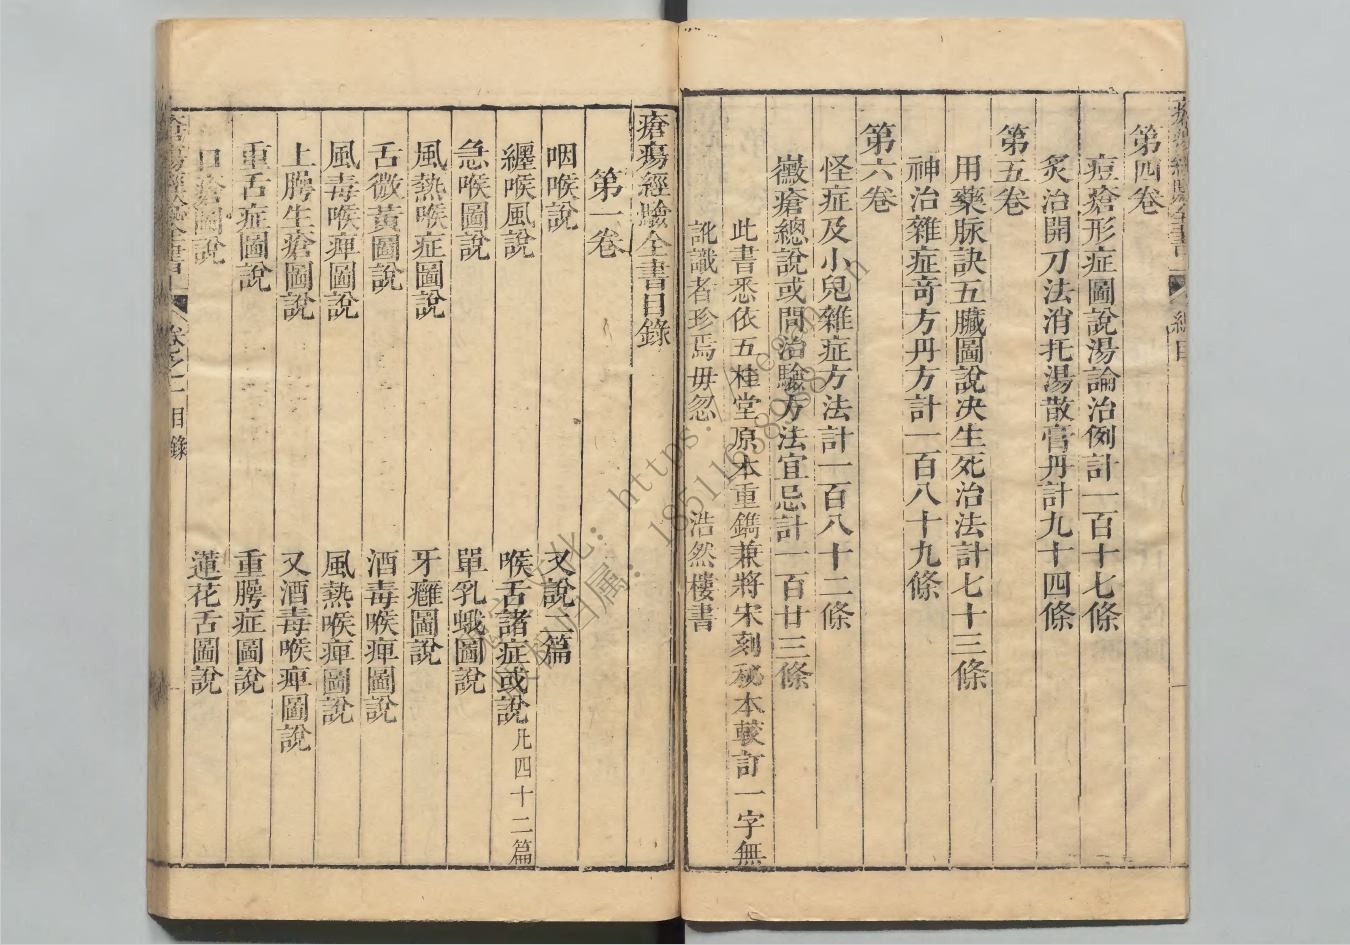 第四卷
痘瘡形症圖說湯論治例計一百十七條
炙治開刀法消托湯散膏丹計九十四條
第五卷
用藥脉訣五臟圖說决生死治法計七十三條
神治雜症奇方丹方計一百八十九條
第六卷
怪症及小兒雜症方法計一百八十二條
黴瘡總說或問治驗方法宜忌計一百廿三條
此書悉依五桂堂原本重鐫兼將宋刻秘本較訂一字無
訛識者珍焉毋忽　浩然樓書
瘡瘍經驗全書目錄
第一卷
咽喉說　又說二篇
纏喉風說　喉舌諸症或說凡四十二篇
急喉圖說　單乳蛾圖說
風熱喉症圖說　牙癰圖說
舌微黃圖說　酒毒喉痺圖說
風毒喉痺圖說　風熱喉痺圖說
上腭生瘡圖說　又酒毒喉痺圖說
重舌症圖說　重腭症圖說
圖說　蓮花舌圖說
瘡瘍經驗全書　卷之一　目錄